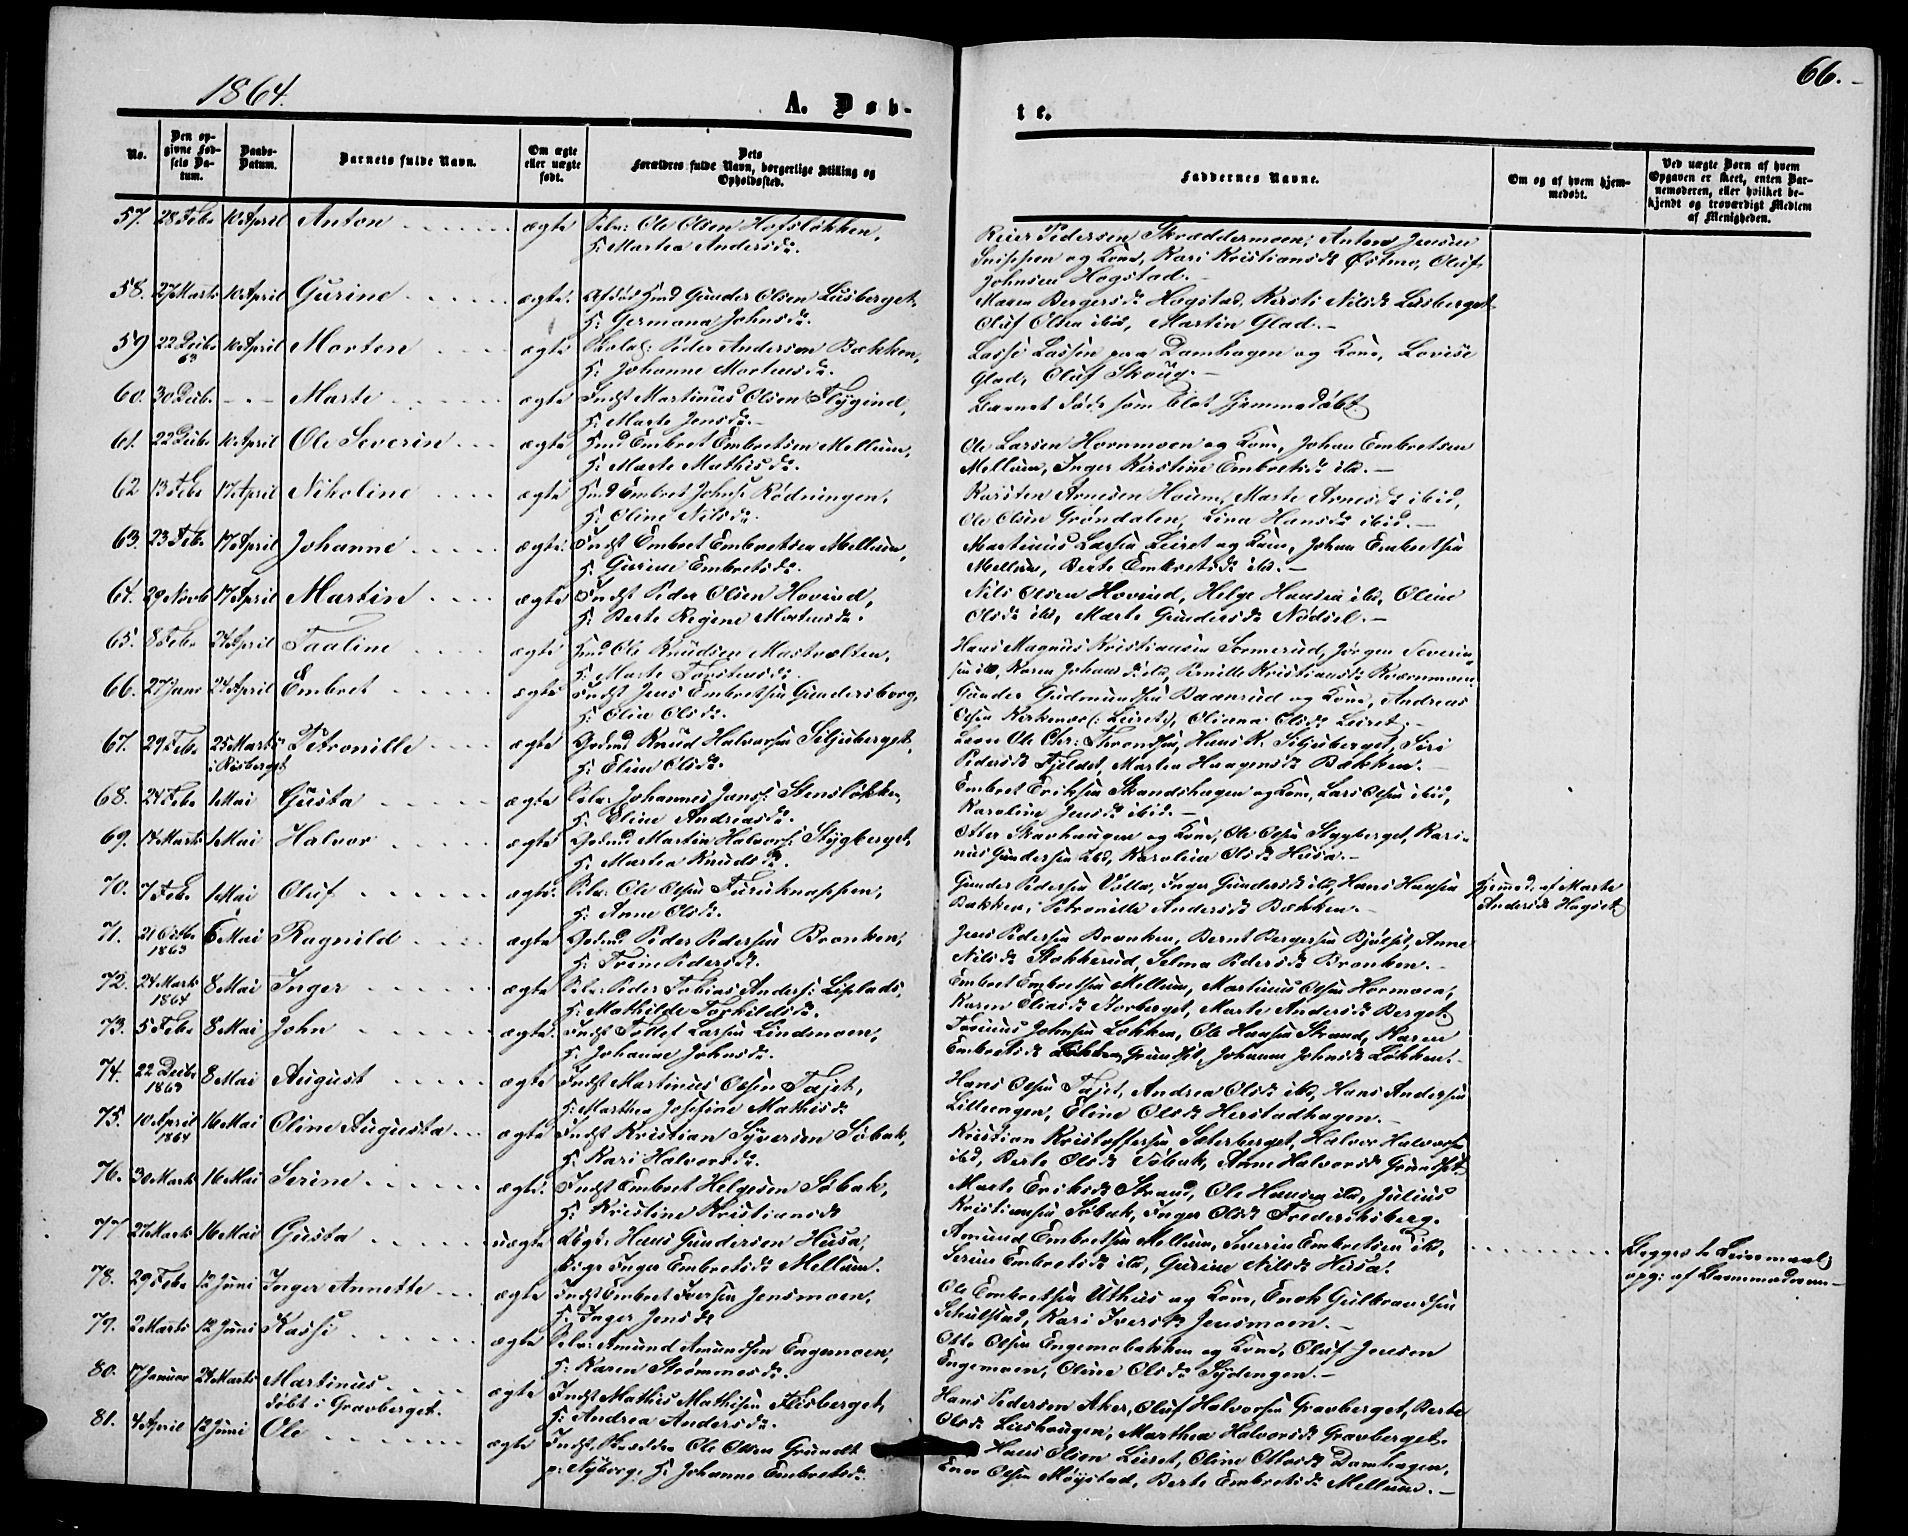 1864.
66.-
A. Døb-
te.
No.
Den op-
givne Fød-
sels Da-
tum.
Daabs-
Datum.
Barnets fulde Navn.
Om ægte
eller uægte
født.
Dets
Forældres fulde Navn, borgerlige Stilling og
Opholdssted.
Faddernes Navne.
Om og af hvem hjem-
medøbt.
Ved uægte Børn af hvem
Opgaven er skeet, enten Bar-
nemoderen, eller hvilket be-
kjendt og troværdigt Medlem
af Menigheden.
57. 28 Febr 10 April Anton ægte Selv: Ole Olsen Hofsløkken,
H: Marthea Andersdr.
Reier Pedersen Skræddermoen, Anton Jensen
Snippen og Kone, Kari Kristiansdr Østmo, Oluf
Johnsen Hogstad.-
58. 27 Marts 10 April Gurine ægte Gmd Gunder Olsen Lusberget,
H: Germana Johnsdr.
Maren Bergersdr Hogstad, Kirsti Nilsdr Lusberget
Oluf Olsen ibid, Martin Glad.-
59 22 Decbr 63 10 April Morten ægte Peder Andersen Bækken,
H: Johanne Mortensdr.
Lasse Lassen paa Damhagen og Kone, Lovise
Glad, Oluf Skoug.-
60. 30 Decbr - - - Marte ægte Indst Martinus Olsen Flygind,
H: Marte Jensdr.-
Barnet Døde som blot hjemmedøbt.
61. 22 Decbr 10 April Ole Severin ægte Gmd Embret Embretsen Mellum,
H: Marte Mathisdr.
Ole Larsen Hornmoen og Kone, Johan Embretsen
Mellum, Inger Kirstine Embretsdr ibd.-
62 13 Febr 17 April Nikoline ægte Gmd Embret Johns: Rødningen,
H: Oline Nilsdr.
Karsten Arnesen Houm, Marte Arnesdr ibid,
Ole Olsen Grøndalen, Lina Hansdr ibid.-
63. 23 Febr 17 April Johanne ægte: Indst Embret Embretsen Mellum,
H: Gurine Embretsdr.
Martinus Larsen Leiret og Kone, Johan Embretsen
Mellum, Berte Embretsdr ibd.-
64. 29 Novb 17 April Martin ægte Indst Peder Olsen Hovind,
H: Berte Regine Mortensdr.
Nils Olsen Hovind, Helge Hansen ibd, Oline
Olsdr ibd, Marte Gundersdr Nødsel.-
65. 8 Febr 24 April Taaline ægte Gmd Ole Knudsen Mastvolten,
H: Marte Torstensdr.
Hans Magnus Kristiansen Sormerud, Jørgen Severin-
sen ibd, Karen Johansdr ibd, Pernille Kristiansdr Kværnmoen
66. 27 Janr 24 April Embret ægte Indst Jens Embretsen Gundersborg,
H: Eline Olsdr.
Gunder Gudmundsen Baanrud og Kone, Andreas
Olsen Kirkemo (: Leiret:), Oliana Olsdr Leiret.-
67. 29 Febr 25 Marts i Risberget Petronille ægte Gdmd Knud Halvorsen Siljuberget,
H: Eline Olsdr.
Ole Chr: Throndsen, Hans K. Siljuberget, Siri
Pedersdr Fjeldet, Marthea Haagensdr Bækken.-
68. 24 Febr 1 Mai Gusta ægte Selv: Johannes Jans: Stensløkken
H: Eline Andreasdr.
Embret Eriksen Strandshagen og Kone, Lars Olsen ibid,
Karoline Jensdr ibid.-
69. 14 Marts 1 Mai Halvor ægte Gdmd Martin Halvors: Stygberget,
H: Marthea Knudsdr.
Otter Skavhaugen og Kone, Ole Olsen Stygberget, Kari-
nus Gundersen ibd, Karoline Olsdr Husa.-
70. 7 Febr 1 Mai Oluf ægte: Selv: Ole Olsen Furuknappen,
H: Anne Olsdr.
Gunder Pedersen Volla, Inger Gundersdr ibd, Hans Hansen
Bækken, Petronille Andersdr Bækken.-
Hjemmed. af Marte
Andersdr Hagset
71. 21 Octbr 1863 6 Mai Ragnild ægte Gdmd Peder Pedersen Bronken,
H: Trine Pedersdr.
Jens Pedersen Bronken, Bernt Bergersen Bjølset, Anne
Nilsdr Stokkerud, Selma Pedersdr Bronken.-
72. 24 Marts 1864 8 Mai Inger ægte Selv: Peder Tobias Anders: Lisplads,
H: Mathilde Torkildsdr.
Embret Embretsen Mellum, Martinus Olsen Hormoen,
Karen Eliasdr Storberget, Marte Andersdr Berget
73. 5 Febr 8 Mai John ægte: Indst Tollef Larsen Lindmoen,
H: Johanne Johnsdr.
Torinus Johnsen Løkken, Ole Hansen Strand, Karen
Embretsdr Grundset, Johanne Johnsdr Løkken.-
74. 22 Decbr 1863 8 Mai August ægte Indst Martinus Olsen Tajet,
H: Marthea Josefine Mathisdr
Hans Olsen Tajet, Andrea Olsdr ibd, Hans Andersen
Lilleengen, Eline Olsdr Herstadhagen.-
75. 10 April 1864 16 Mai Oline Augusta ægte Indst Kristian Syversen Søbak,
H: Kari Halvorsdr.
Kristian Kristoffersen Sæterberget, Halvor Halvorsen
ibd, Berte Olsdr Søbak, Anne Halvorsdr Grundset
76. 30 Marts 16 Mai Serine ægte: Indst Embret Helgesen Søbak,
H: Kristine Kristiansdr
Marte Eriksdr Strand, Ole Hansen ibd, Julius
Kristiansen Søbak, Inger Olsdr Frederiksberg.
77 27 Marts 16 Mai Gusta uægte Ubgt: Hans Gundersen Husa,
Pige Inger Embretsdr Mellum.
Amund Embretsen Mellum, Severin Embretsen ibd,
Serine Embretsdr ibd, Gurine Nilsdr Husa.
Begges 1te Leiermaal
opg: af Barnemoderen-
78. 29 Febr 12 Juni Inger Annette ægte Indst Embret Iversen Jensmoen,
H: Inger Jensdr
Ole Embretsen Uthus og Kone, Enok Gulbrandsen
Schulstad, Kari Iversdr Jensmoen.-
79. 2 Marts 12 Juni Kassi ægte Selv: Amund Amundsen Engemoen,
H: Karen Steimonsdr.
Otto Olsen Engemobakken og Kone, Oluf Jensen
Engemoen, Oline Olsdr Sydengen.-
80. 17 Januar 24 Marts Martinus ægte Indst Mathis Mathisen Flisberget,
døbt i Gravberget.
H: Andrea Andersdr.
Hans Pedersen Aker, Oluf Halvorsen Gravberget, Berte
Olsdr Lushaugen, Marthea Halvorsdr Gravberget.
81. 4 April 12 Juni Ole ægte Indst Ole Olsen Grundt
p: Nyborg, H: Johanne Embretsdr.
Hans Olsen Leiret, Oline Ottosdr Damhagen,
Enor Olsen Møystad, Berte Embretsdr Mellum.-